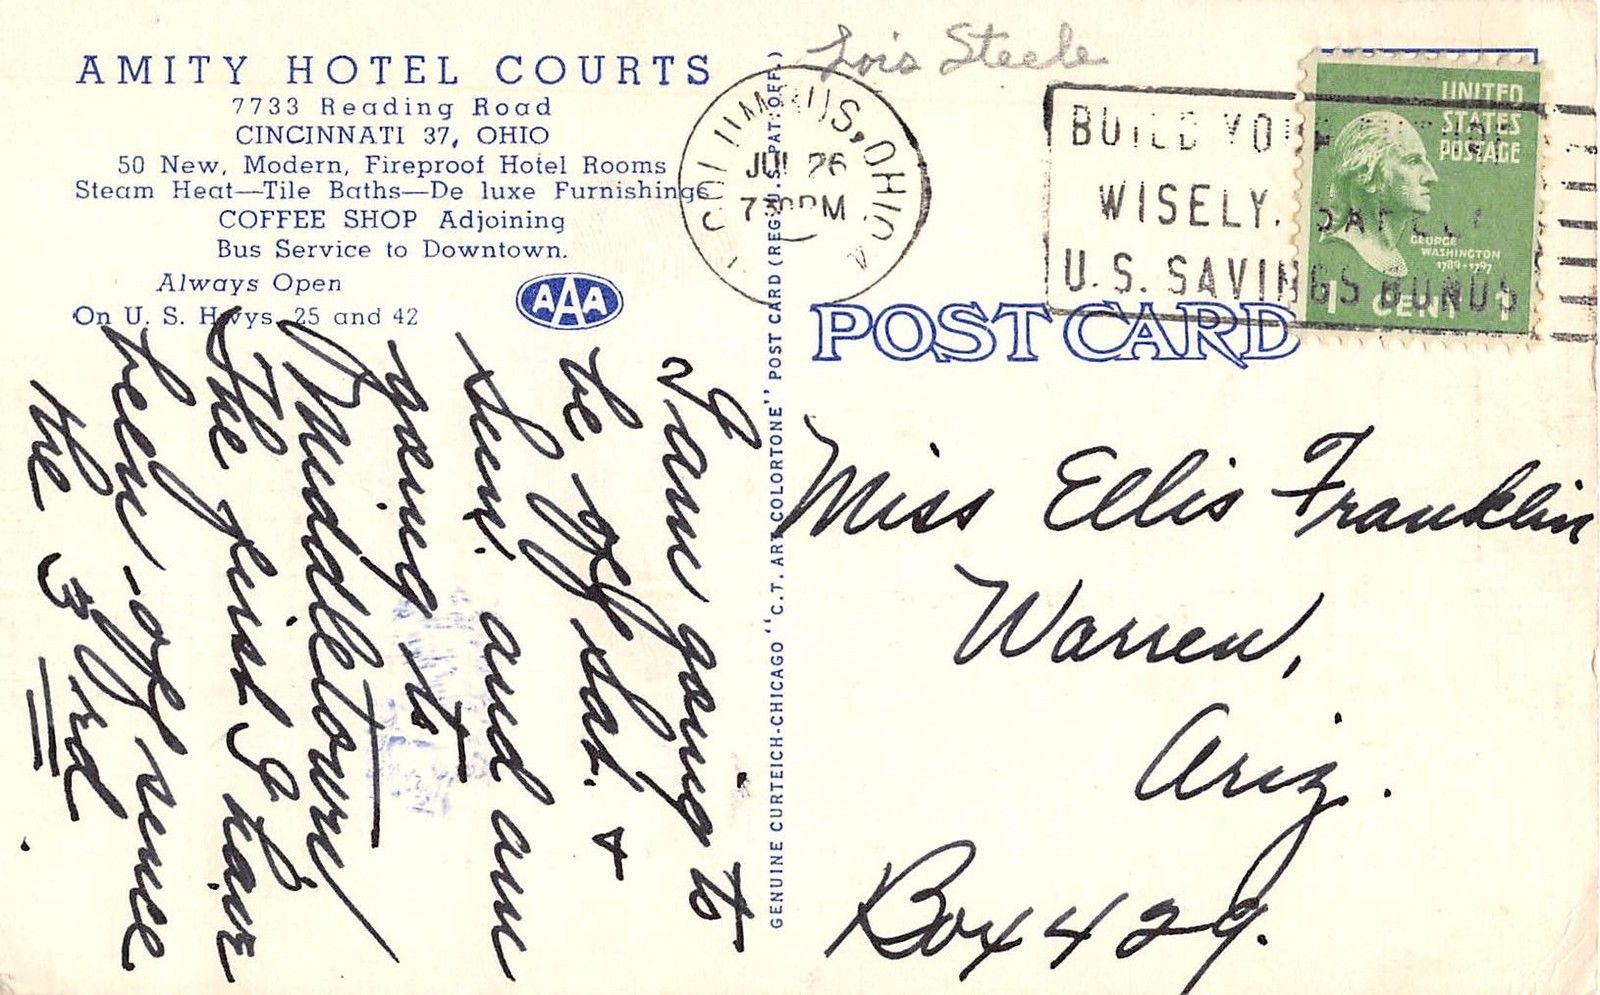 AMITY HOTEL COURTS
7733 Reading Road
CINCINNATI 37, OHIO
50 New, Modern, Fireproof Hotel Rooms
Steam Heat—Tile Baths—De luxe Furnishings
COFFEE SHOP Adjoining
Bus Service to Downtown.
Always Open
On U. S. Hwys. 25 and 42
AAA
I am going to
be off Sat. &
Sun. and am
going to
Middletown
The first I have
been off since
the 3rd.
GENUINE CURTEICH-CHICAGO "C.T. ART-COLORTONE" POST CARD (REG. U.S. PAT. OFF.)
Lois Steele
COLUMBUS, OHIO
JUL 26
7 30 PM
BUILD YOUR FUTURE
WISELY, SAFELY
U.S. SAVINGS BONDS
UNITED
STATES
POSTAGE
GEORGE
WASHINGTON
1789-1797
1 CENT 1
POST CARD
Miss Ellis Franklin
Warren,
Ariz.
Box 429.